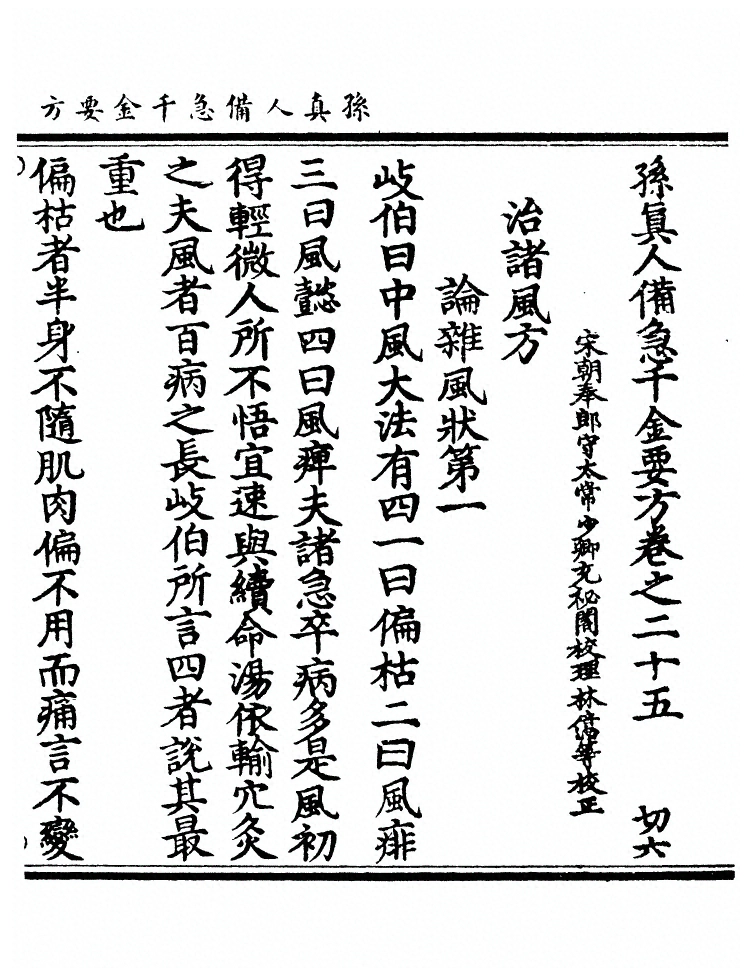 孫真人備急千金要方
孫眞人備急千金要方卷之二十五 切六
宋朝奉郎守太常少卿充秘閣校理林億等校正
治諸風方
論雜風狀第一
岐伯曰中風大法有四一曰偏枯二曰風痱
三曰風懿四曰風痺夫諸急卒病多是風初
得輕微人所不悟宜速與續命湯依輸穴灸
之夫風者百病之長岐伯所言四者說其最
重也
偏枯者半身不隨肌肉偏不用而痛言不變